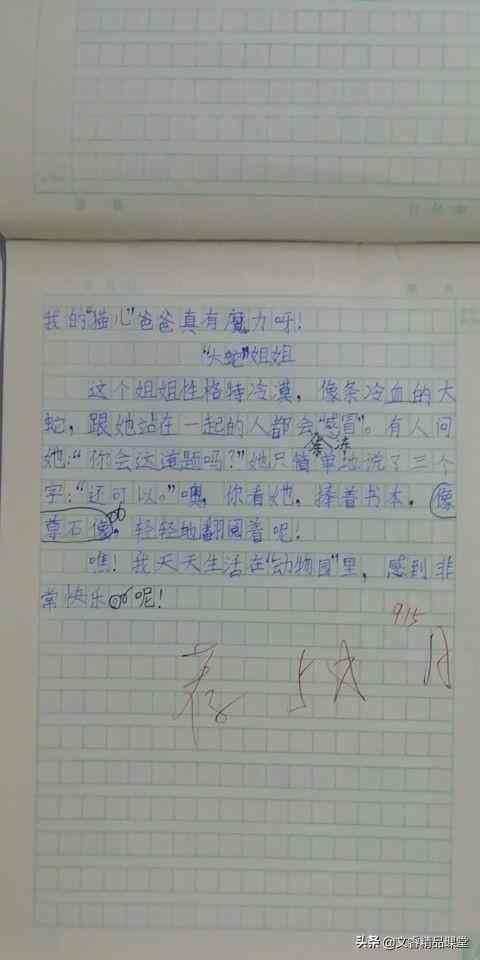 我的“猫儿”爸爸真有魔力呀！
“大蛇”姐姐
这个姐姐性格特冷漠，像条冷血的大
蛇，跟她站在一起的人都会“感冒”。有人问
她：“你会这道题吗？”她只简单地说了三个
字：“还可以。”噢，你看她，捧着书本，像
尊石像，轻轻地翻阅着呢！
瞧！我天天生活在“动物园”里，感到非
常快乐呢！
9.15
头条 @文睿精品课堂